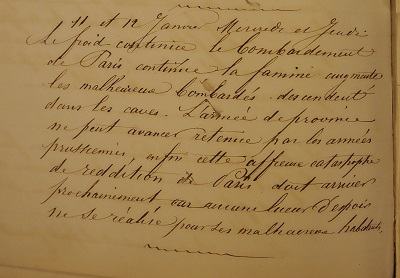 11 et 12 Janvier Mercredi et Jeudi
Le froid continue le Bombardement
de Paris continue la famine augmente
les malheureux Bombardés descendent
dans les caves. L'armée de province
ne peut avancer retenue par les armées
prussiennes, enfin cette affreuse catastrophe
de reddition de Paris doit arriver
prochainement car aucune lueur d'espoir
ne se réalise pour ses malheureux habitants.